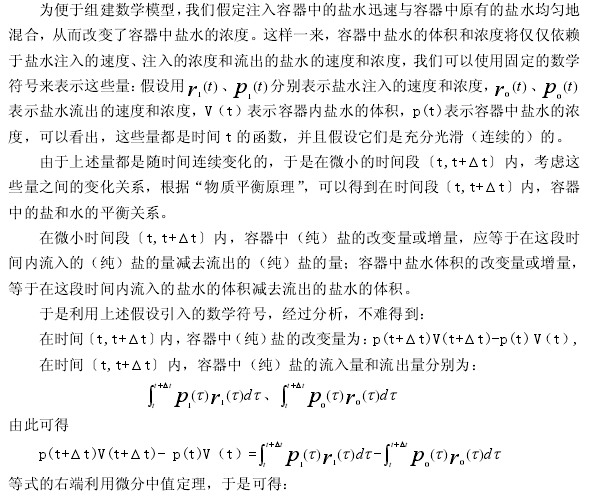 为便于组建数学模型,我们假定注入容器中的盐水迅速与容器中原有的盐水均匀地
混合,从而改变了容器中盐水的浓度。这样一来,容器中盐水的体积和浓度将仅仅依赖
于盐水注入的速度、注入的浓度和流出的盐水的速度和浓度,我们可以使用固定的数学
符号来表示这些量:假设用r₁(t)、p₁(t)分别表示盐水注入的速度和浓度,r₀(t)、p₀(t)
表示盐水流出的速度和浓度,V(t)表示容器内盐水的体积,p(t)表示容器中盐水的浓
度,可以看出,这些量都是时间t的函数,并且假设它们是充分光滑(连续的)的。
由于上述量都是随时间连续变化的,于是在微小的时间段〔t,t+Δt〕内,考虑这
些量之间的变化关系,根据“物质平衡原理”,可以得到在时间段〔t,t+Δt〕内,容器
中的盐和水的平衡关系。
在微小时间段〔t,t+Δt〕内,容器中(纯)盐的改变量或增量,应等于在这段时
间内流入的(纯)盐的量减去流出的(纯)盐的量;容器中盐水体积的改变量或增量,
等于在这段时间内流入的盐水的体积减去流出的盐水的体积。
于是利用上述假设引入的数学符号,经过分析,不难得到:
在时间〔t,t+Δt〕内,容器中(纯)盐的改变量为:p(t+Δt)V(t+Δt)-p(t)V(t),
在时间〔t,t+Δt〕内,容器中(纯)盐的流入量和流出量分别为:
∫ₜᵗ⁺ᐃᵗ p₁(τ)r₁(τ)dτ、∫ₜᵗ⁺ᐃᵗ p₀(τ)r₀(τ)dτ
由此可得
p(t+Δt)V(t+Δt)- p(t)V(t)=∫ₜᵗ⁺ᐃᵗ p₁(τ)r₁(τ)dτ-∫ₜᵗ⁺ᐃᵗ p₀(τ)r₀(τ)dτ
等式的右端利用微分中值定理,于是可得: